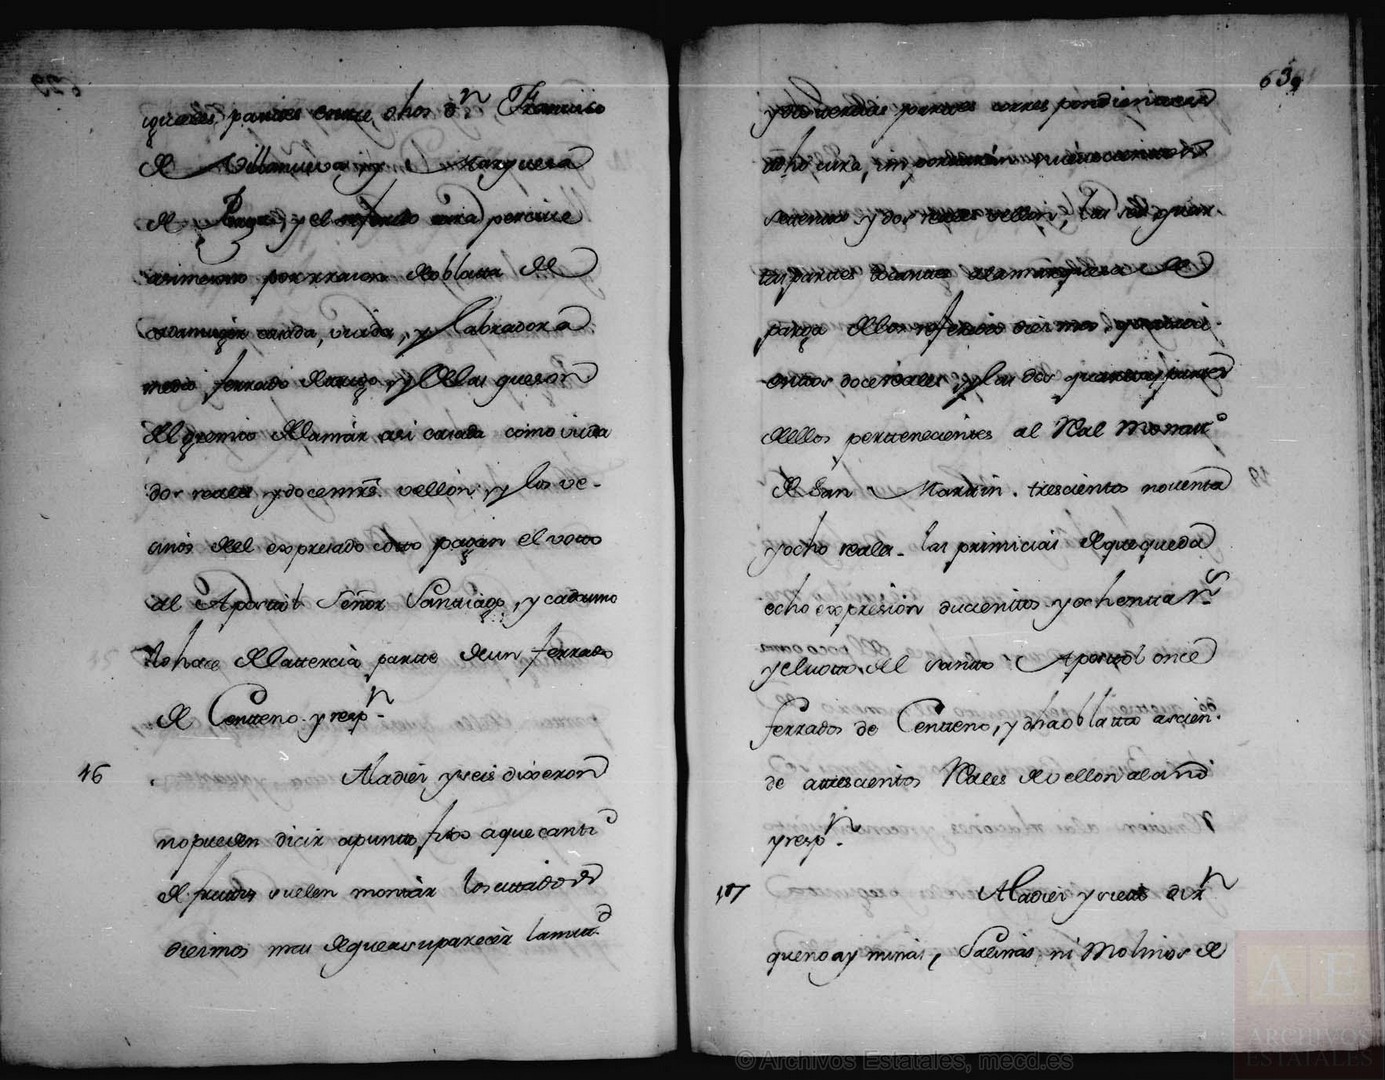 iguales partes entre dhos dn Francisco
de Villanueva y la Marquesa
de Parga, y el referido cura percive
asimesmo por rraion de oblatta de
cadamugir casada, viuda, y labradora
medio ferrado de trigo, y de las que son
del gremio de la mar asi casada como viuda
dos reales y doce mrs. vellon, y los ve-
cinos del expresado coto pagan el votto
al Apostol Señor Santiago, y cada uno
lo hace de la tercia partte de un ferrado
de Centteno. y respn.
16
A la diez y seis dixeron
no pueden dicir a puntto fixo a que cantid
de fruttos suelen montar los cittados
diezmos mas de que a su parecer la mitad
639
tocantes partes correspondientes a
dho cura, in portaran quatrocientos
settenta y dos reales vellon, las dos quar-
tas partes tocantes a la marquesa de
parga de los referidos diezmos, quattroci-
enttos doce reales y las dos quarttas parttes
de ellos pertenecientes al Real Monasto
de San Martin. trescientos noventa
y ocho reals. las primicias de que queda
echo expresion ducienttos y ochentta rs.
y el votto del santto Aposttol once
ferrados de Centteno, y dha oblatta ascien-
de a ttrescienttos Reales de vellon al año
y respn.
17
A la diez y siette dixn
que no ay minas, Salinas ni Molinos de
© Archivos Estatales, mecd.es
AE
ARCHIVOS
ESTATALES